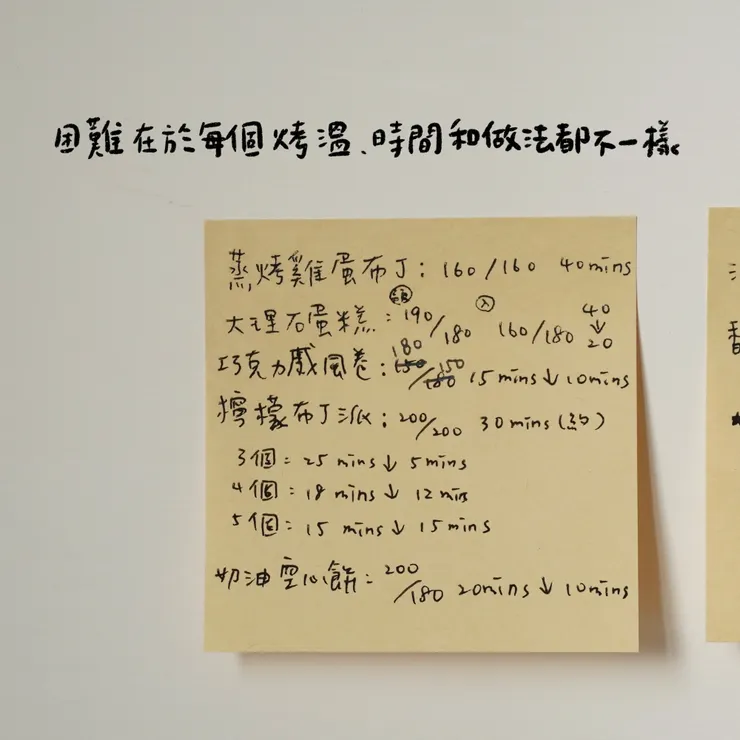 困難在於每個烤溫、時間和做法都不一樣
蒸烤雞蛋布丁：160/160 40mins
大理石蛋糕：190/180 160/180 40↓20
巧克力戲風卷：180/150 15mins↓10mins
檸檬布丁派：200/200 30mins(約)
3個：25 mins↓5mins
4個：18 mins↓12mins
5個：15 mins↓15mins
奶油空心餅：200/180 20mins↓10mins